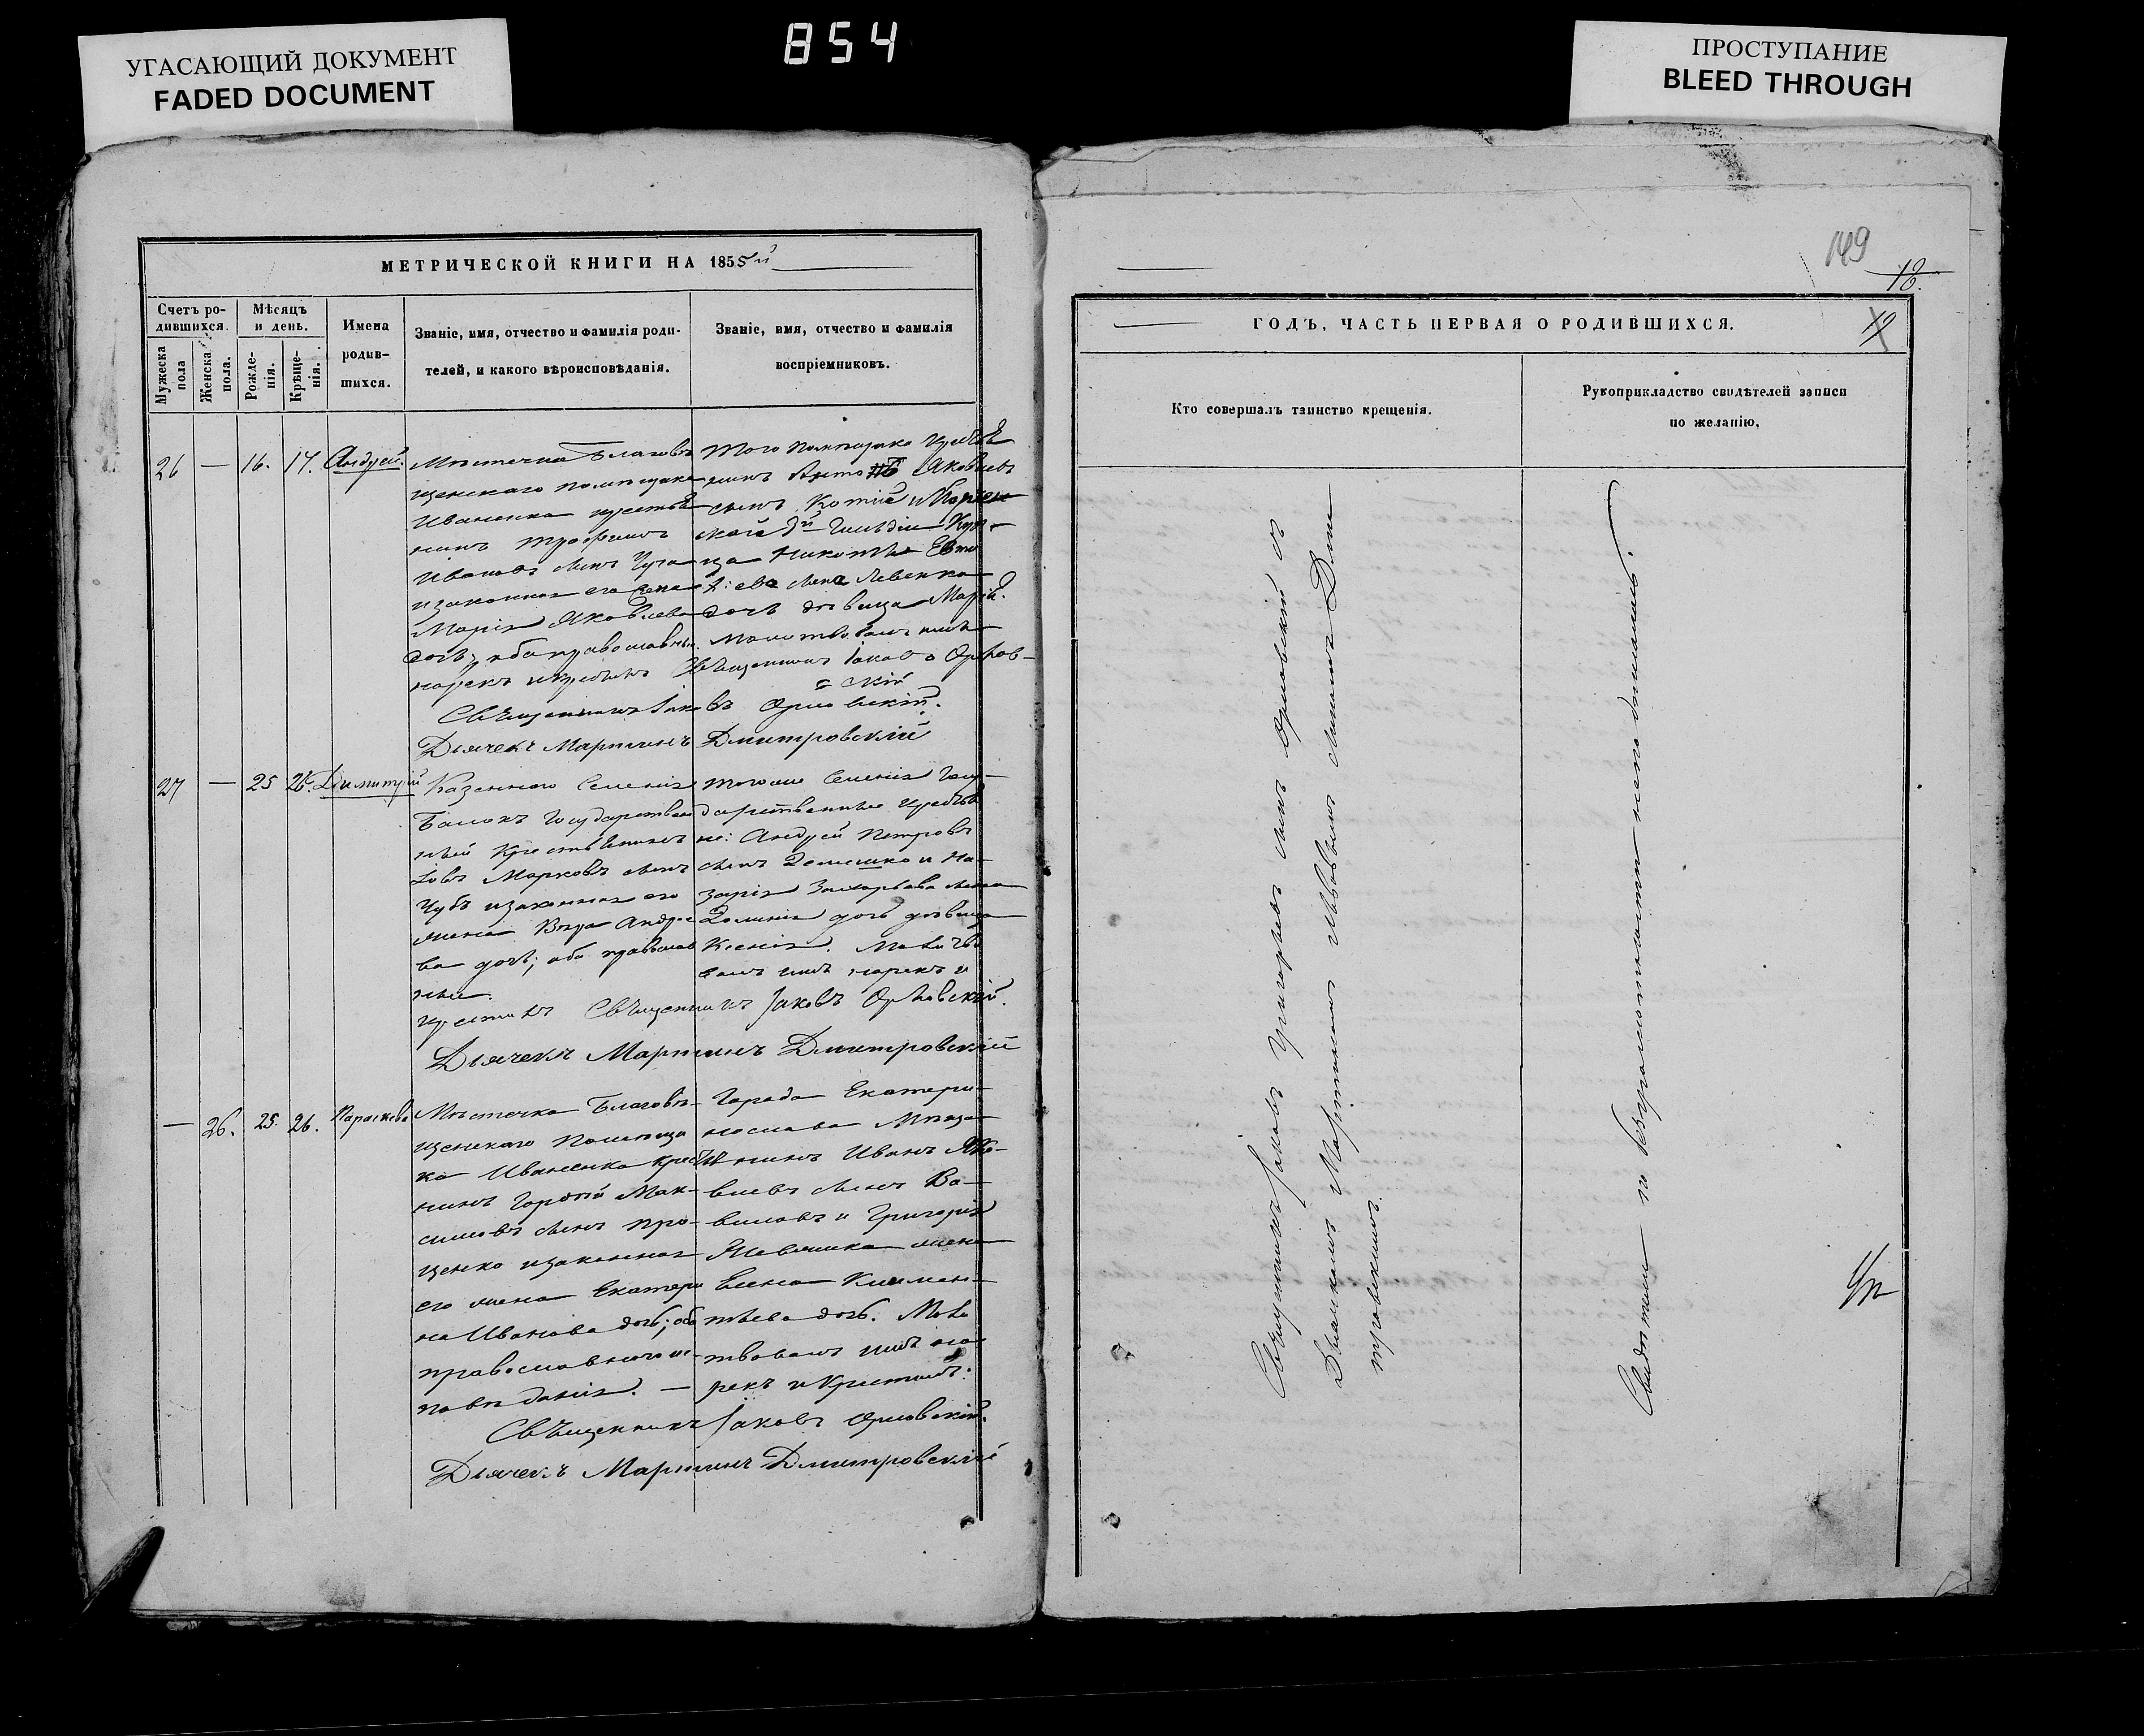 УГАСАЮЩИЙ ДОКУМЕНТ
FADED DOCUMENT
854
ПРОСТУПАНИЕ
BLEED THROUGH
МЕТРИЧЕСКОЙ КНИГИ НА 1855й
Счетъ ро-
дившихся.
Мужеска
пола
Женска
пола.
Мѣсяцъ
и день.
Рожде-
нія.
Крѣще-
нія.
Имена
родив-
шихся.
Званіе, имя, отчество и фамилія роди-
телей, и какого вѣроисповѣданія.
Званіе, имя, отчество и фамилія
воспріемниковъ.
26 — 16. 17. Андрей.
Мѣстечка Благовѣ
щенскаго помѣщика
Иваненка крестья
нинъ Трофимъ
Ивановъ сынъ
изаконная его жена
Марія Яковлева
дочь, оба православные.
Того помѣщика
Яковлевъ
сынъ
гильдіи
сына Левенка
дочь дѣвица Марія.
нарекъ Священникъ Іаковъ Орлов-
скій
Священникъ Іаковъ Орловскій.
Дьячекъ Мартинъ Дмитровскій
27 — 25 26. Димитрій
Казеннаго Селенія
Балокъ Государствен
ный Крестьянинъ
Марковъ сынъ
Чубъ изаконная его
жена Вѣра Андрее
ва дочь; оба православ
ные.
тогоже Селенія Госу-
дарственные
не: Андрей Петровъ
сынъ и На-
зарія Захарьева сына
дочь дѣвица
Ксенія.
валъ имя нарекъ и
крестилъ Священникъ Іаковъ Орловскій.
Дьячекъ Мартинъ Дмитровскій
— 26. 25. 26. Параскева
Мѣстечка Благовѣ-
щенскаго Помѣщи
ка Иваненка крестья
нинъ Гордѣй Мак-
симовъ сынъ Про-
ценко изаконная
его жена Екатери
на Иванова дочь; оба
православнаго ис-
повѣданія. —
Города Екатери-
нослава Мѣща
нинъ Иванъ Яко-
влевъ сынъ Ва-
виловъ и Григорія
Шевченка жена
Елена Климен-
тьева дочь. Моли
твовалъ имя на
рекъ и Крестилъ:
Священникъ Іаковъ Орловскій.
Дьячекъ Мартинъ Дмитровскій
149
18.
ГОДЪ, ЧАСТЬ ПЕРВАЯ О РОДИВШИХСЯ.
19
Кто совершалъ таинство крещенія.
Рукоприкладство свидѣтелей записи
по желанію,
Священникъ Іаковъ Григорьевъ сынъ Орловскій съ
Дьячкомъ Мартиномъ Львовымъ сыномъ Дми
тровскимъ.
Свидѣтели по безграмотности неподписались.